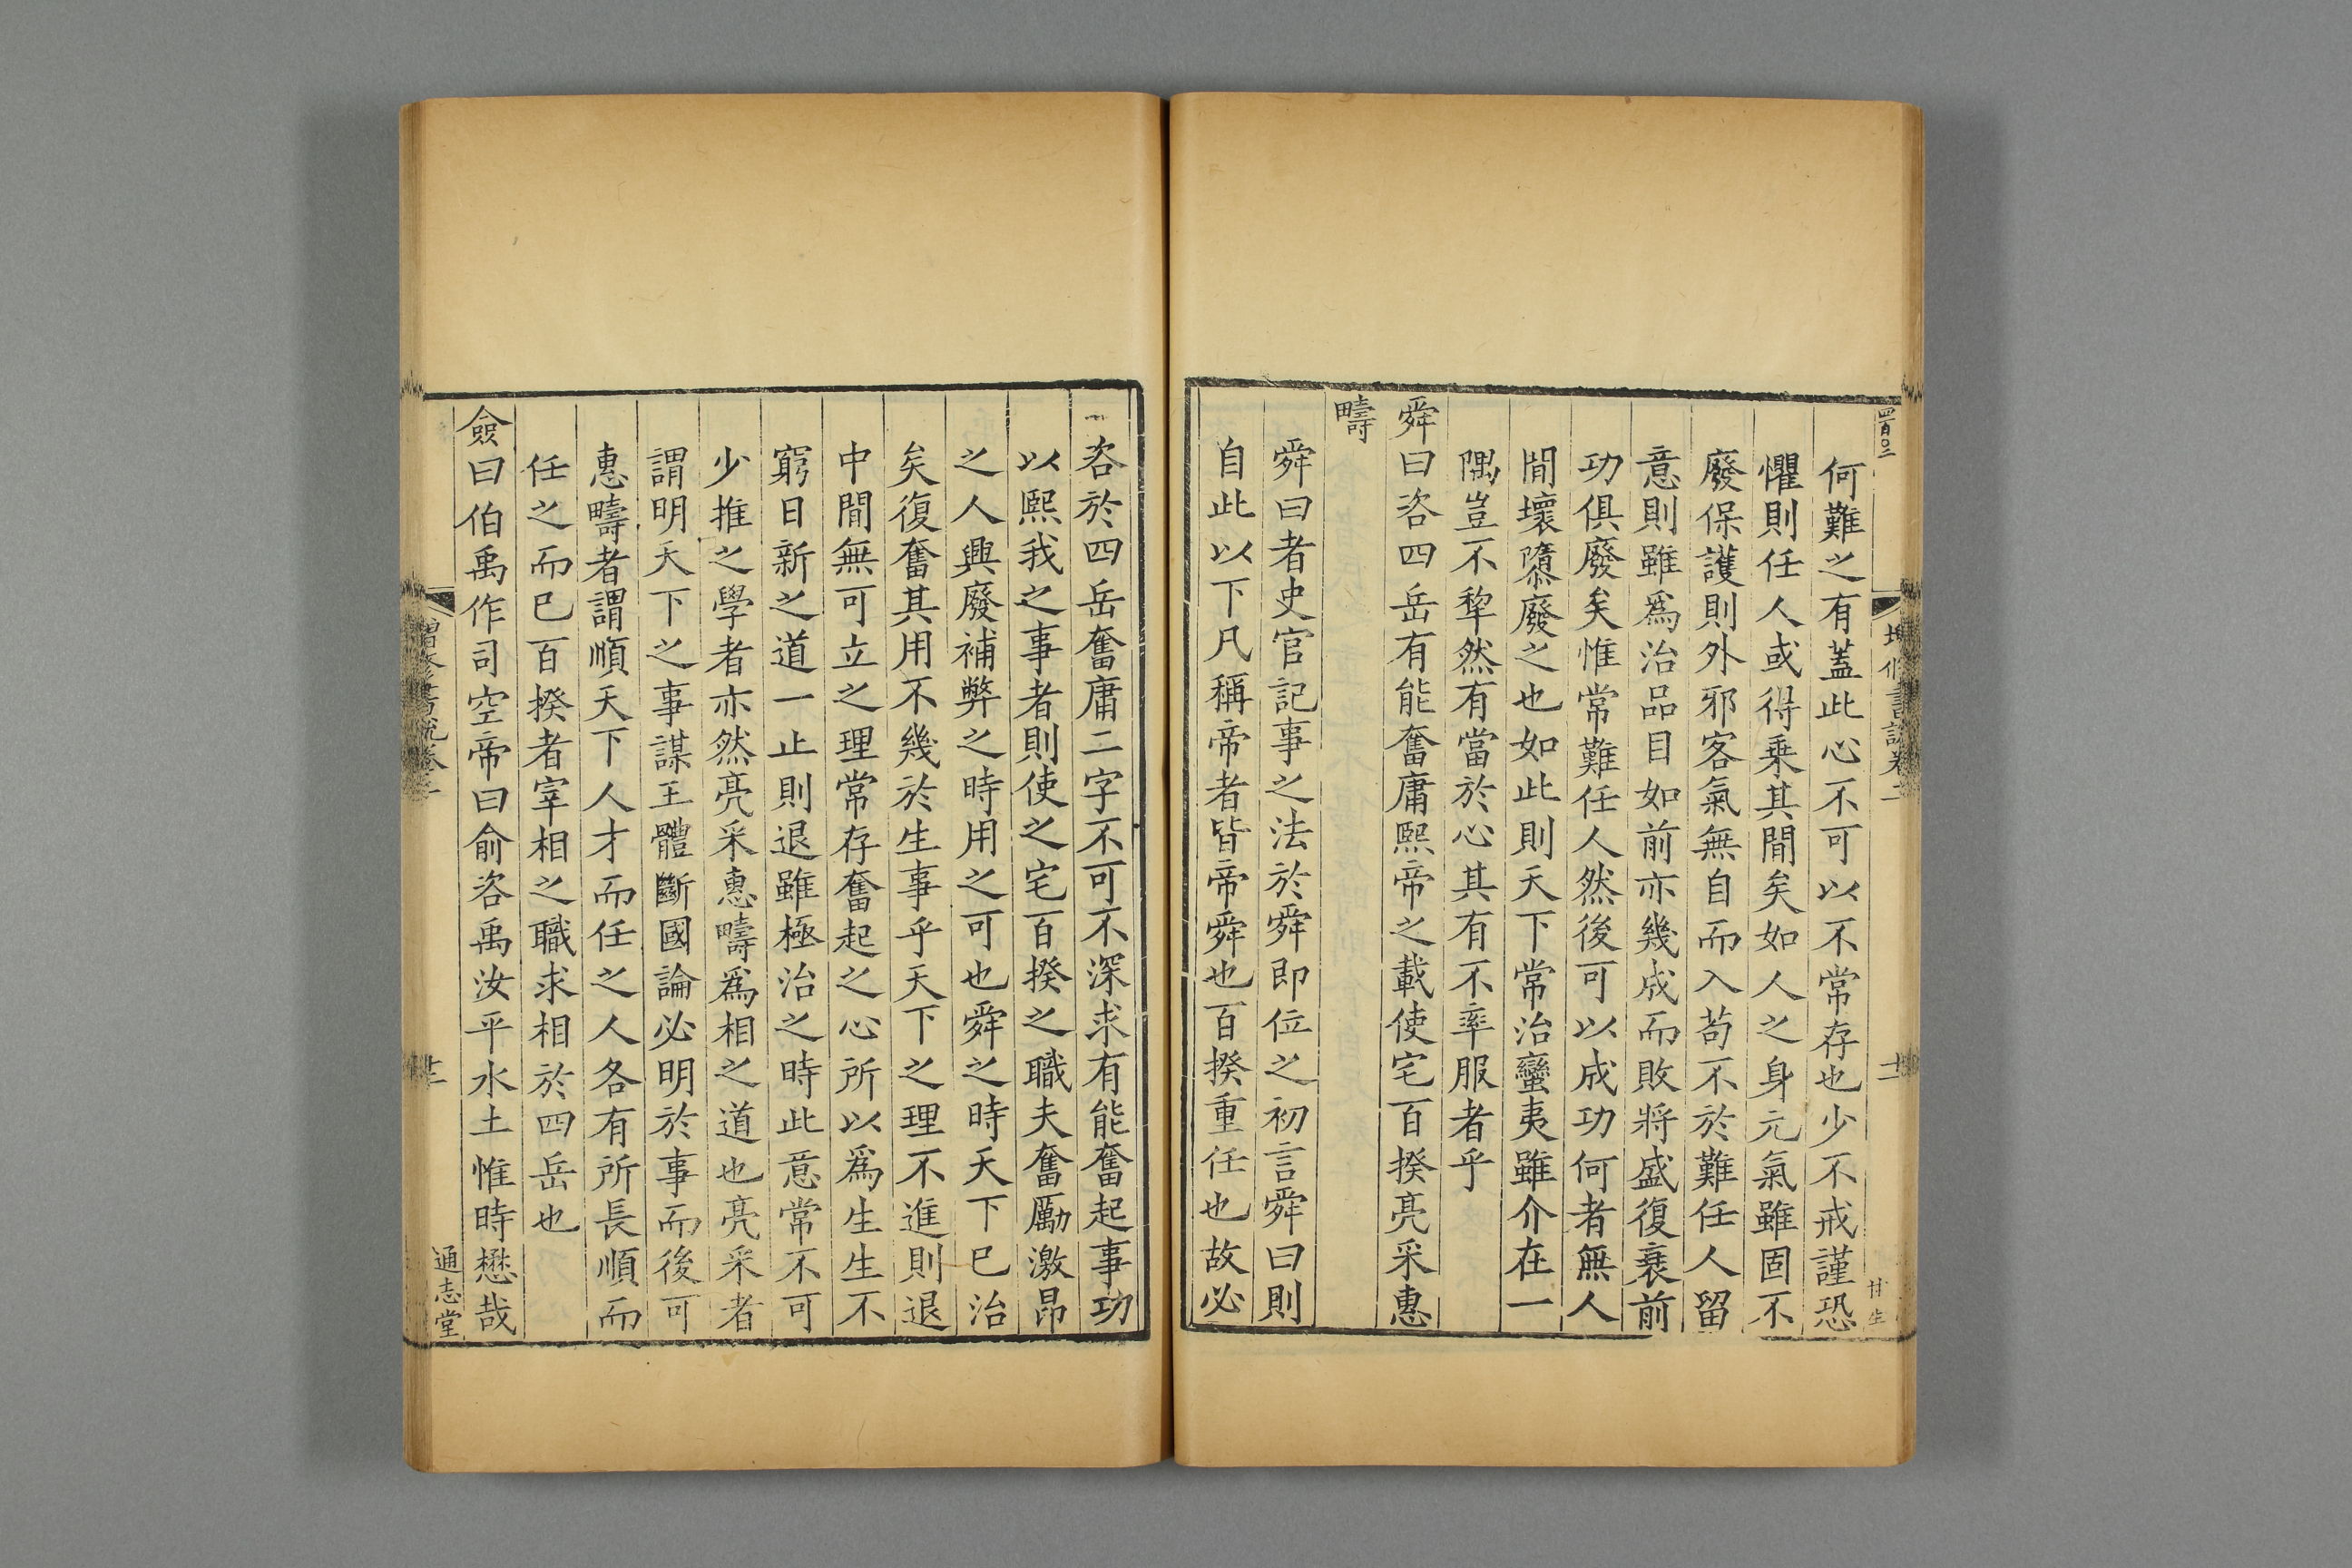 何難之有蓋此心不可以不常存也少不戒謹恐
懼則任人或得乗其間矣如人之身元氣雖固不
廢保護則外邪客氣無自而入苟不於難任人留
意則雖爲治品目如前亦幾成而敗將盛復衰前
功俱廢矣惟常難任人然後可以成功何者無人
間壞隳廢之也如此則天下常治蠻夷雖介在一
隅豈不犂然有當於心其有不率服者乎
舜曰咨四岳有能奮庸熙帝之載使宅百揆亮采惠
疇
舜曰者史官記事之法於舜即位之初言舜曰則
自此以下凡稱帝者皆帝舜也百揆重任也故必
咨於四岳奮庸二字不可不深求有能奮起事功
以熙我之事者則使之宅百揆之職夫奮厲激昂
之人興廢補弊之時用之可也舜之時天下已治
矣復奮其用不幾於生事乎天下之理不進則退
中間無可立之理常存奮起之心所以爲生生不
窮日新之道一止則退雖極治之時此意常不可
少推之學者亦然亮采惠疇爲相之道也亮采者
謂明天下之事謀王體斷國論必明於事而後可
惠疇者謂順天下人才而任之人各有所長順而
任之而已百揆者宰相之職求相於四岳也
僉曰伯禹作司空帝曰俞咨禹汝平水土惟時懋哉
增修書說卷二
通志堂